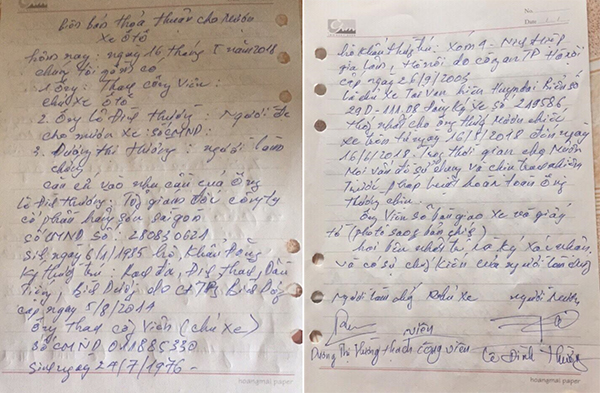 biên bản thỏa thuận cho mượn
xe ô tô
hôm nay: ngày 16 tháng 5 năm 2018
chúng tôi gồm có
1. Ông: Thạch Công Viên:
chủ xe ô tô
2. Ông Lê Đình Thưởng: Người
cho mượn xe: Số CMND:
3. Dương Thị Hường: người làm
chứng
căn cứ vào nhu cầu của Ông
Lê Đình Thưởng: Tổng giám đốc công ty
cổ phần sài gòn
Số CMND Số: 280830621
Sinh ngày 6/1/1985 hộ khẩu
ký thường trú: Dầu
Tiếng, Bình Dương do CA Bình Dương
cấp ngày 5/8/2014
Ông Thạch Công Viên (chủ xe)
Số CMND 011885330
Sinh ngày 24/7/1976
hoangmai paper
No.
Date
hộ khẩu thường trú: Xóm 4 - Hiệp
gia lâm, Hà nội do công an TP Hà nội
cấp ngày 26/9/2005
Là chủ xe Tải Van hiệu Huyndai Biển số
29D-111.08 đăng ký xe số 219586
thống nhất cho ông thưởng mượn chiếc
xe trên từ ngày 16/5/2018 đến ngày
16/6/2018. Trong thời gian cho mượn
Mọi vấn đề sử dụng và chịu trách nhiệm
trước pháp luật hoàn toàn ông
thưởng chịu.
Ông Viên sẽ bàn giao xe và giấy
tờ (photo sao bản chính)
hai bên nhất trí và ký xác nhận
và có sự chứng kiến của người làm chứng
Người làm chứng Chủ xe người mượn
Viên
Dương Thị Hường Thạch Công Viên Lê Đình Thưởng
hoangmai paper